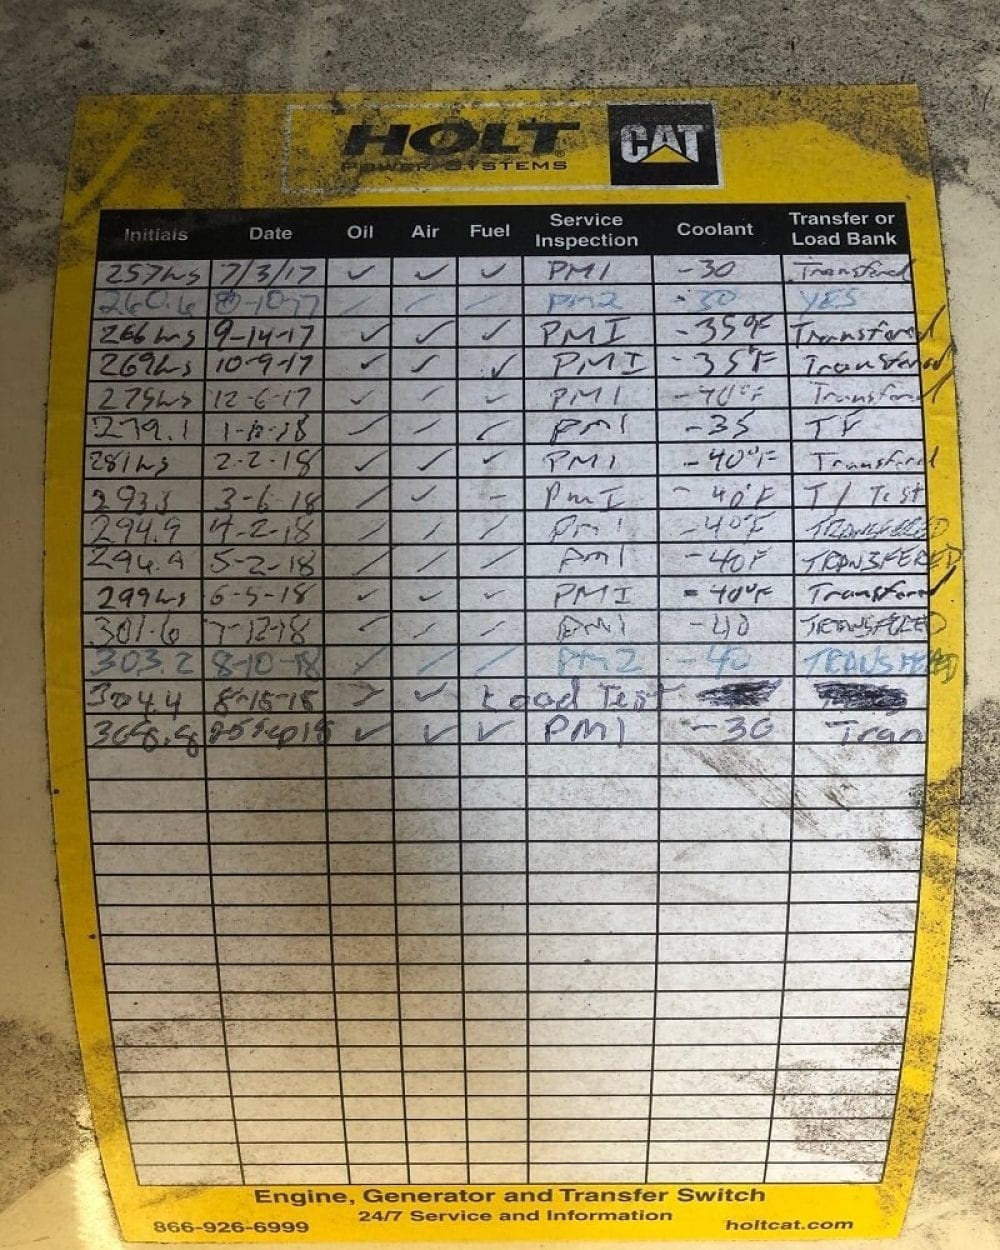 HOLT CAT
POWER SYSTEMS
Initials Date Oil Air Fuel Service Inspection Coolant Transfer or Load Bank
257hrs 7/3/17 ✓ ✓ ✓ PM1 -30 Transfered
260.6 8-10-17 PM2 -30 YES
266hrs 9-14-17 ✓ ✓ ✓ PM I -35°F Transfered
269hrs 10-9-17 ✓ ✓ ✓ PM I -35°F Transfered
275hrs 12-6-17 ✓ ✓ ✓ PM1 -40°F Transfered
279.1 PM1 -35 TF
281hrs 2-2-18 ✓ ✓ ✓ PM1 -40°F Transfered
293.3 3-6-18 / ✓ - PM I -40°F T/Test
294.9 4-2-18 / / / PM1 -40°F TRANSFERED
5-2-18 / / / PM1 -40F TRANSFERED
299hrs 6-5-18 ✓ ✓ ✓ PM I -40°F Transfered
301.6 7-12-18 PM1 -40 TRANSFERED
303.2 8-10-18 / / / PM2 -40 TRANSFERED
304.4 8-15-18 ✓ Load Test
✓ ✓ ✓ PM1 -30 Tran
Engine, Generator and Transfer Switch
24/7 Service and Information
866-926-6999 holtcat.com